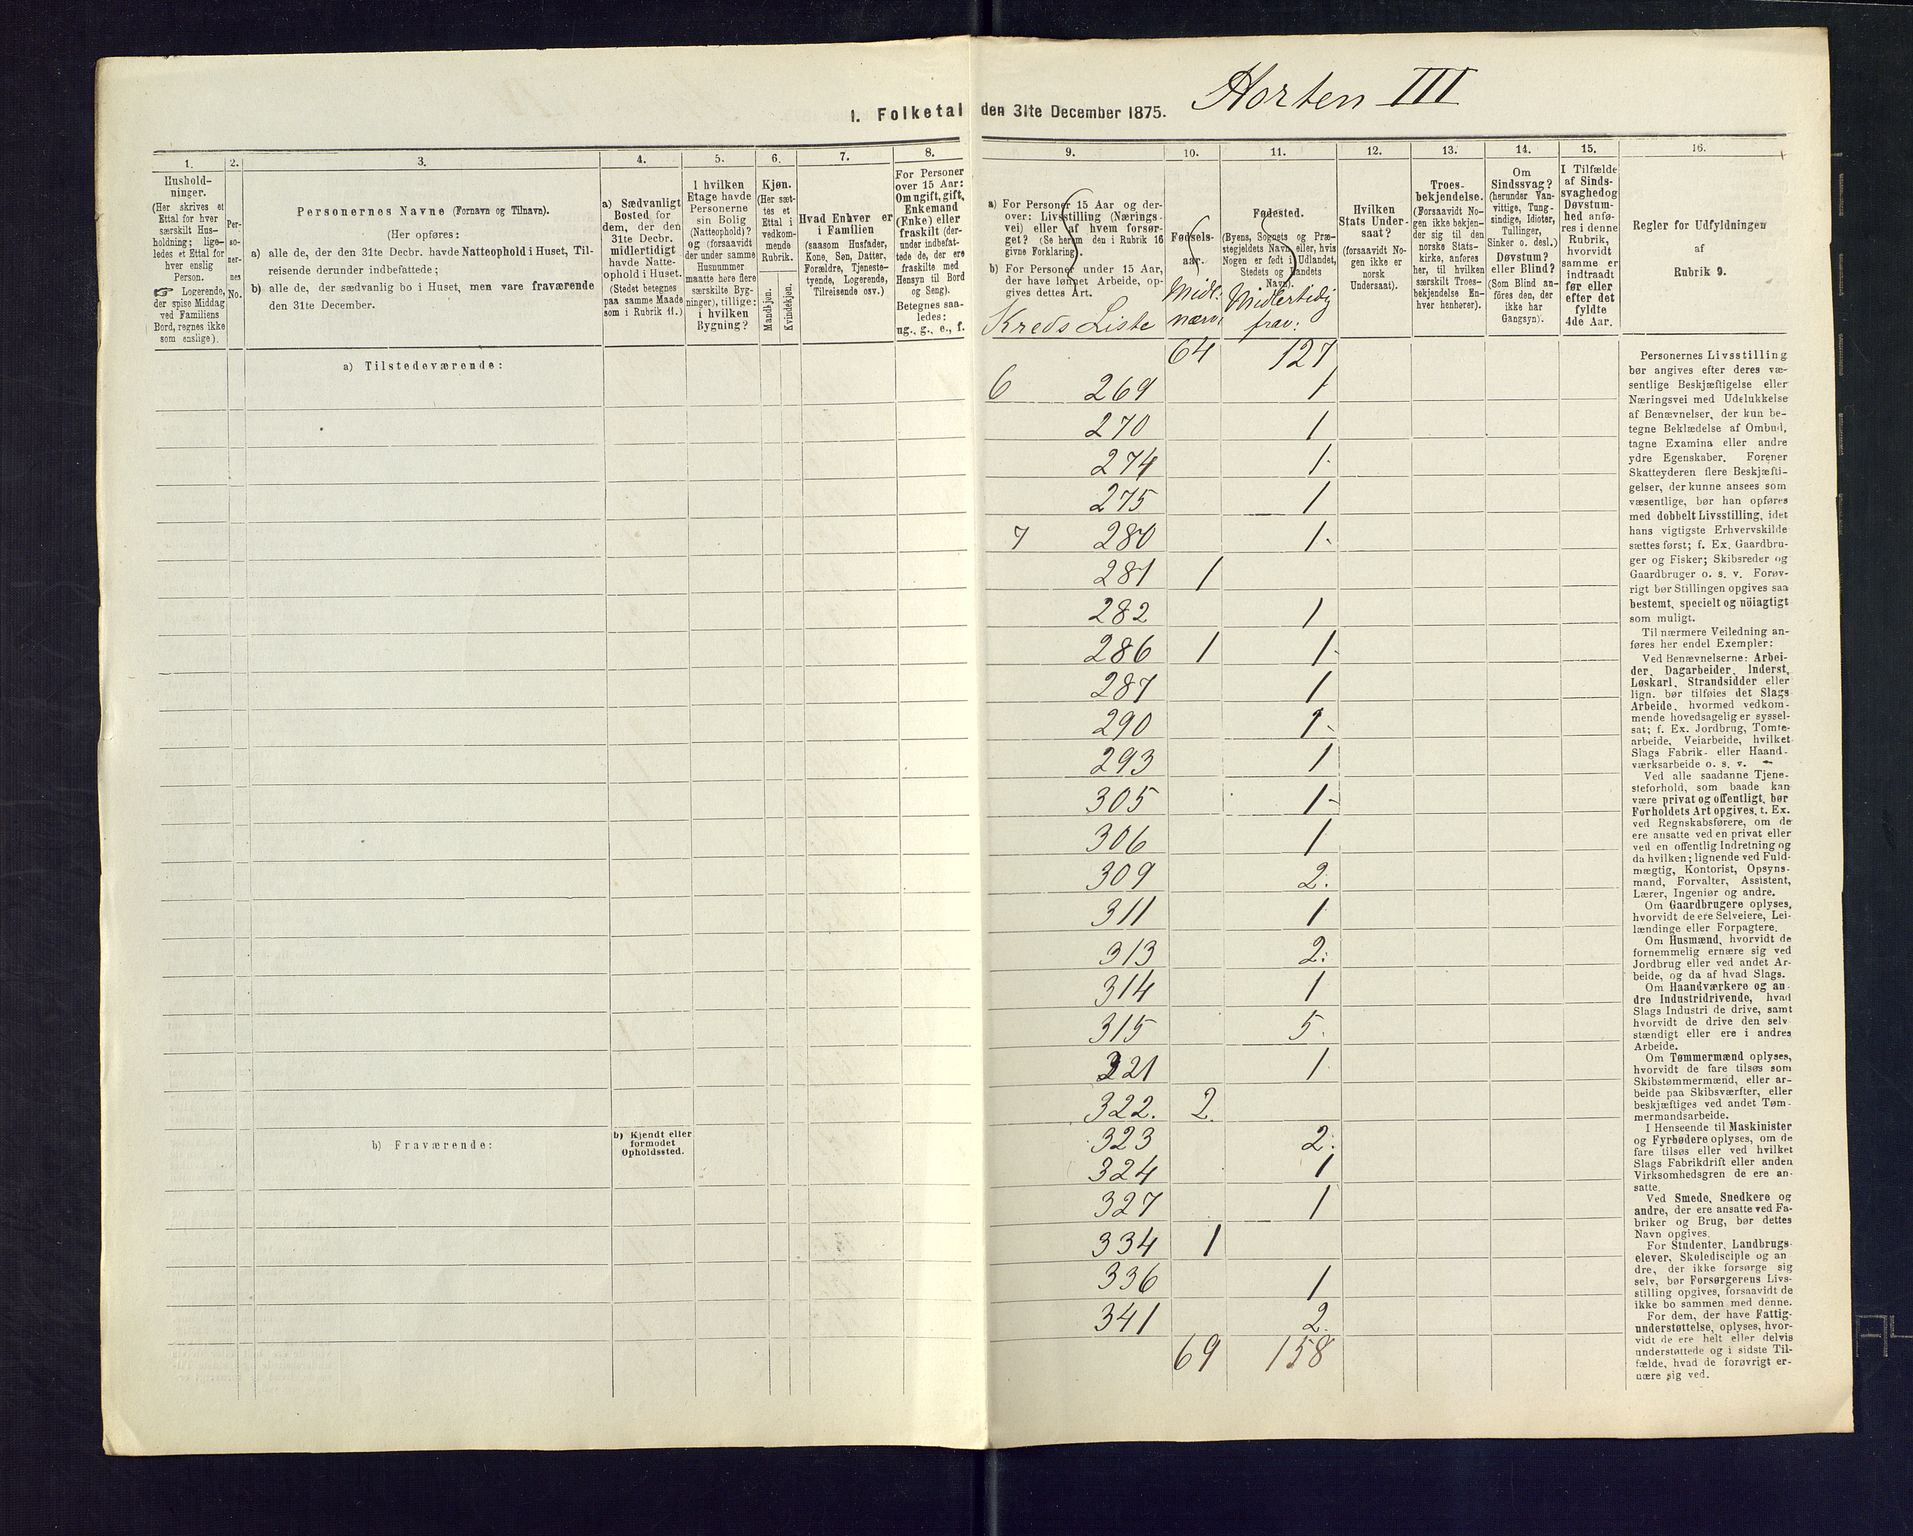 Horten III
1. Folketal den 31te December 1875.
1. 2. 3. 4. 5. 6. 7. 8. 9. 10. 11. 12. 13. 14. 15. 16.
Husholdninger.
(Her skrives et
Ettal for hver
særskilt Husholdning;
ligeledes et Ettal for
hver enslig
Person.
☞ Logerende,
der spise Middag
ved Familiens
Bord, regnes ikke
som enslige).
Personernes
No.
Personernes Navne (Fornavn og Tilnavn).
(Her opføres:
a) alle de, der den 31te Decbr. havde Natteophold i Huset, Tilreisende
derunder indbefattede;
b) alle de, der sædvanlig bo i Huset, men vare fraværende
den 31te December.
a) Sædvanligt
Bosted for
dem, der den
31te Decbr.
midlertidigt
havde Natteophold
i Huset.
(Stedet betegnes
paa samme Maade
som i Rubrik 11.)
I hvilken
Etage havde
Personerne
sin Bolig
(Natteophold)?
og (forsaavidt
der under samme
Husnummer
maatte here flere
særskilte Bygninger),
tillige:
i hvilken
Bygning?
Kjøn.
(Her sættes
et
Ettal i
vedkommende
Rubrik.
Mandkjøn.
Kvindekjøn.
Hvad Enhver er
i Familien
(saasom Husfader,
Kone, Søn, Datter,
Forældre, Tjenestetyende,
Logerende,
Tilreisende osv.)
For Personer
over 15 Aar:
Om ugift, gift,
Enkemand
(Enke) eller
fraskilt (derunder
indbefattede
de, der ere
fraskilte med
Hensyn til Bord
og Seng).
Betegnes saaledes:
ug., g., e., f.
a) For Personer 15 Aar og derover:
Livsstilling (Næringsvei)
eller af hvem forsørget?
(Se herom den i Rubrik 16
givne Forklaring).
b) For Personer under 15 Aar,
der have lønnet Arbeide, opgives
dettes Art.
Kreds Liste
Fødselsaar.
Midl:
nærv:
Fødested.
(Byens, Sognets og Præstegjeldets
Navn eller, hvis
Nogen er født i Udlandet,
Stedets og Landets
Navn).
Midlertidig
frav:
Hvilken
Stats Undersaat?
(forsaavidt Nogen
ikke er
norsk
Undersaat).
Troesbekjendelse.
(Forsaavidt Nogen
ikke bekjender
sig til den
norske Statskirke,
anføres
her, til hvilken
særskilt Troesbekjendelse
Enhver
henhører).
Om
Sindssvag?
(herunder Vanvittige,
Tungsindige,
Idioter,
Tullinger,
Sinker o. desl.)
Døvstum?
eller Blind?
(Som Blind anføres
den, der
ikke har
Gangsyn).
I Tilfælde
af Sindssvaghed
og
Døvstumhed
anføres
i denne
Rubrik,
hvorvidt
samme er
indtraadt
før eller
efter det
fyldte
4de Aar.
Regler for Udfyldningen
af
Rubrik 9.
a) Tilstedeværende:
64 127
6 269 1
270 1
274 1
275 1
7 280 1
281 1
282 1
286 1 1
287 1
290 1
293 1
305 1
306 1
309 2
311 1
313 2
314 1
315 5
321 1
322. 2
323 2
324 1
327 1
334 1
336 1
341 2
69 158
b) Fraværende:
b) Kjendt eller
formodet
Opholdssted.
Personernes Livsstilling
bør angives efter deres væsentlige
Beskjæftigelse eller
Næringsvei med Udelukkelse
af Benævnelser, der kun betegne
Beklædelse af Ombud,
tagne Examina eller andre
ydre Egenskaber. Forener
Skatteyderen flere Beskjæftigelser,
der kunne ansees som
væsentlige, bør han opføres
med dobbelt Livsstilling, idet
hans vigtigste Erhvervskilde
sættes først; f. Ex. Gaardbruger
og Fisker; Skibsreder og
Gaardbruger o. s. v. Forøvrigt
bør Stillingen opgives saa
bestemt, specielt og nöiagtigt
som muligt.
Til nærmere Veiledning anføres
her endel Exempler:
Ved Benævnelserne: Arbeider,
Dagarbeider, Inderst,
Løskarl, Strandsidder eller
lign. bør tilføies det Slags
Arbeide, hvormed vedkommende
hovedsagelig er sysselsat;
f. Ex. Jordbrug, Tomtearbeide,
Veiarbeide, hvilket
Slags Fabrik- eller Haandværksarbeide
o. s. v.
Ved alle saadanne Tjenesteforhold,
som baade kan
være privat og offentligt, bør
Forholdets Art opgives, t. Ex.
ved Regnskabsførere, om de
ere ansatte ved en privat eller
ved en offentlig Indretning og
da hvilken; lignende ved Fuldmægtig,
Kontorist, Opsynsmand,
Forvalter, Assistent,
Lærer, Ingeniør og andre.
Om Gaardbrugere oplyses,
hvorvidt de ere Selveiere, Leilændinge
eller Forpagtere.
Om Husmænd, hvorvidt de
fornemmelig ernære sig ved
Jordbrug eller ved andet Arbeide,
og da af hvad Slags.
Om Haandværkere og andre
Industridrivende, hvad
Slags Industri de drive, samt
hvorvidt de drive den selvstændigt
eller ere i andres
Arbeide.
Om Tømmermænd oplyses,
hvorvidt de fare tilsøs som
Skibstømmermænd, eller arbeide
paa Skibsværfter, eller
beskjæftiges ved andet Tømmermandsarbeide.
I Henseende til Maskinister
og Fyrbødere oplyses, om de
fare tilsøs eller ved hvilket
Slags Fabrikdrift eller anden
Virksomhedsgren de ere ansatte.
Ved Smede, Snedkere og
andre, der ere ansatte ved Fabriker
og Brug, bør dettes
Navn opgives.
For Studenter, Landbrugselever,
Skoledisciple og andre,
der ikke forsørge sig
selv, bør Forsørgerens Livsstilling
opgives, forsaavidt de
ikke bo sammen med denne.
For dem, der have Fattigunderstøttelse,
oplyses, hvorvidt
de ere helt eller delvis
understøttede og i sidste Tilfælde,
hvad de forøvrigt ernære
sig ved.